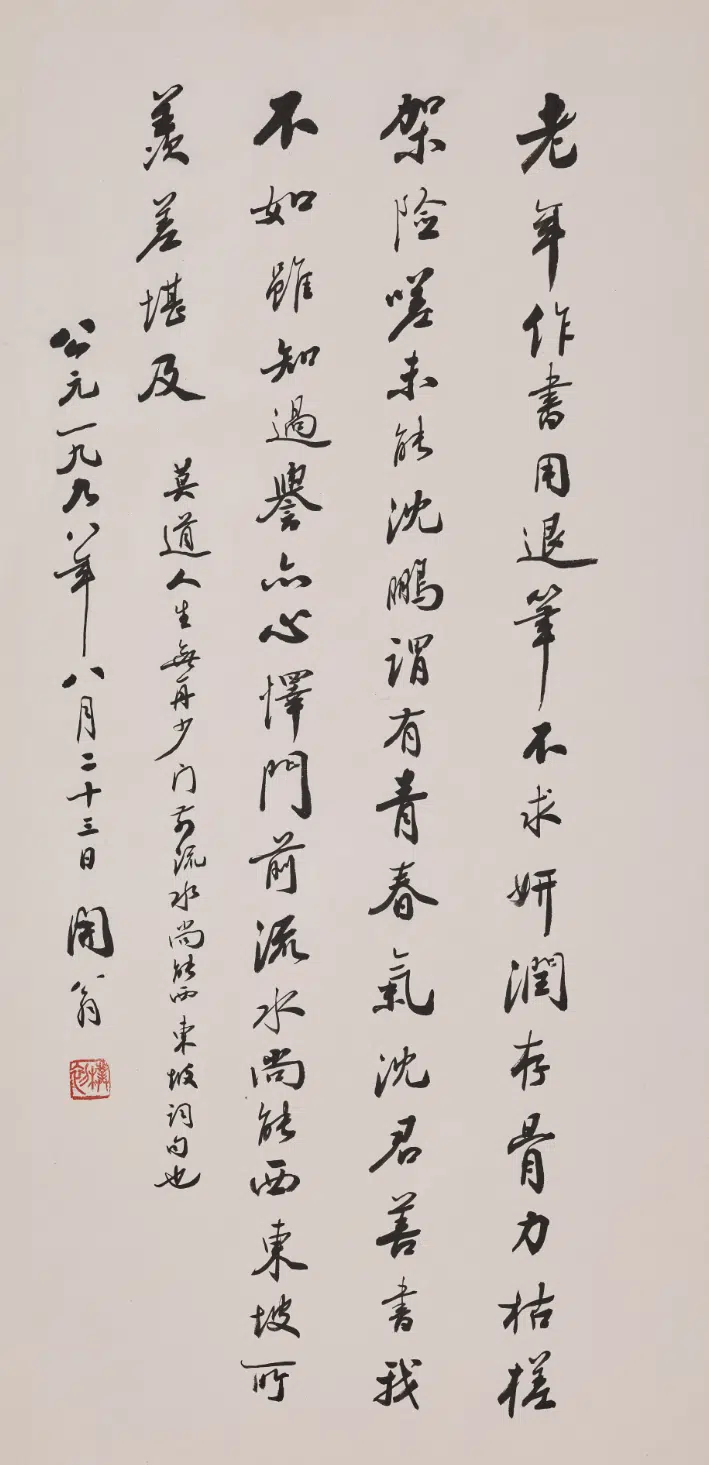 老年作書用退筆不求妍潤存骨力枯槎
架險嗟未能沈鵬謂有青春氣沈君善書我
不如雖知過譽亦心懌門前流水尚能西東坡所
羨差堪及
莫道人生無再少门前流水尚能西東坡词句也
公元一九九八年八月二十三日閑翁